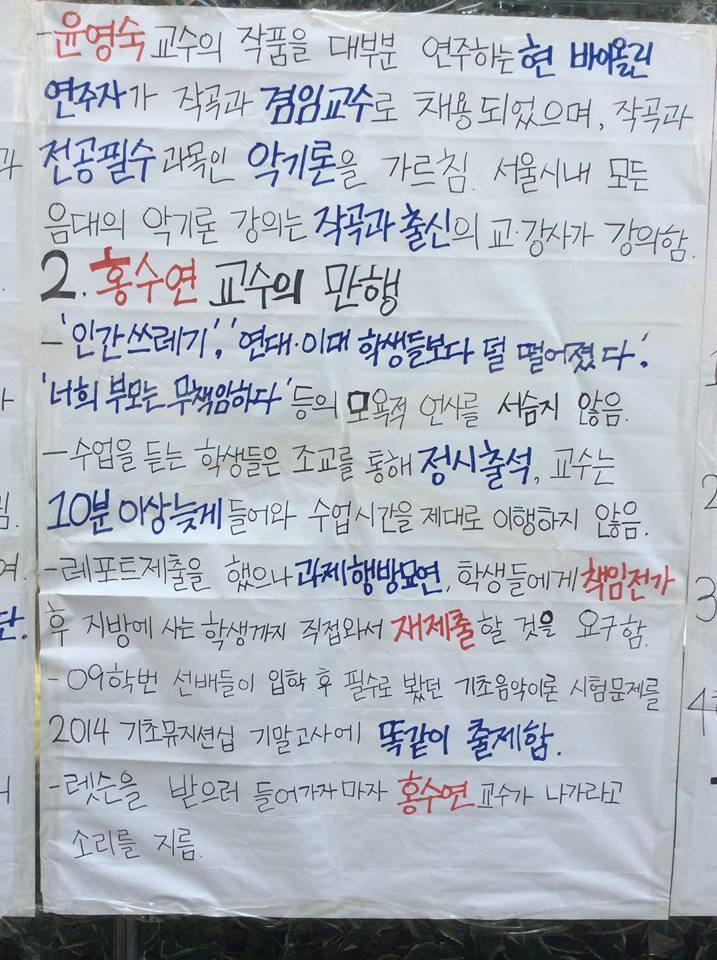 -윤영숙 교수의 작품을 대부분 연주하는 현 바이올린
연주자가 작곡과 겸임교수로 채용되었으며, 작곡과
전공필수 과목인 악기론을 가르침. 서울시내 모든
음대의 악기론 강의는 작곡과 출신의 교·강사가 강의함.
2. 홍수연 교수의 만행
-'인간쓰레기', '연대·이대 학생들보다 덜 떨어졌다',
'너희 부모는 무책임하다' 등의 모욕적 언사를 서슴지 않음.
-수업을 듣는 학생들은 조교를 통해 정시출석, 교수는
10분 이상 늦게 들어와 수업시간을 제대로 이행하지 않음.
-레포트제출을 했으나 과제행방묘연, 학생들에게 책임전가
후 지방에 사는 학생까지 직접와서 재제출 할 것을 요구함.
-09학번 선배들이 입학 후 필수로 봤던 기초음악이론 시험문제를
2014 기초뮤지션십 기말고사에 똑같이 출제함.
-렛슨을 받으러 들어가자 마자 홍수연 교수가 나가라고
소리를 지름.
단.
3
4